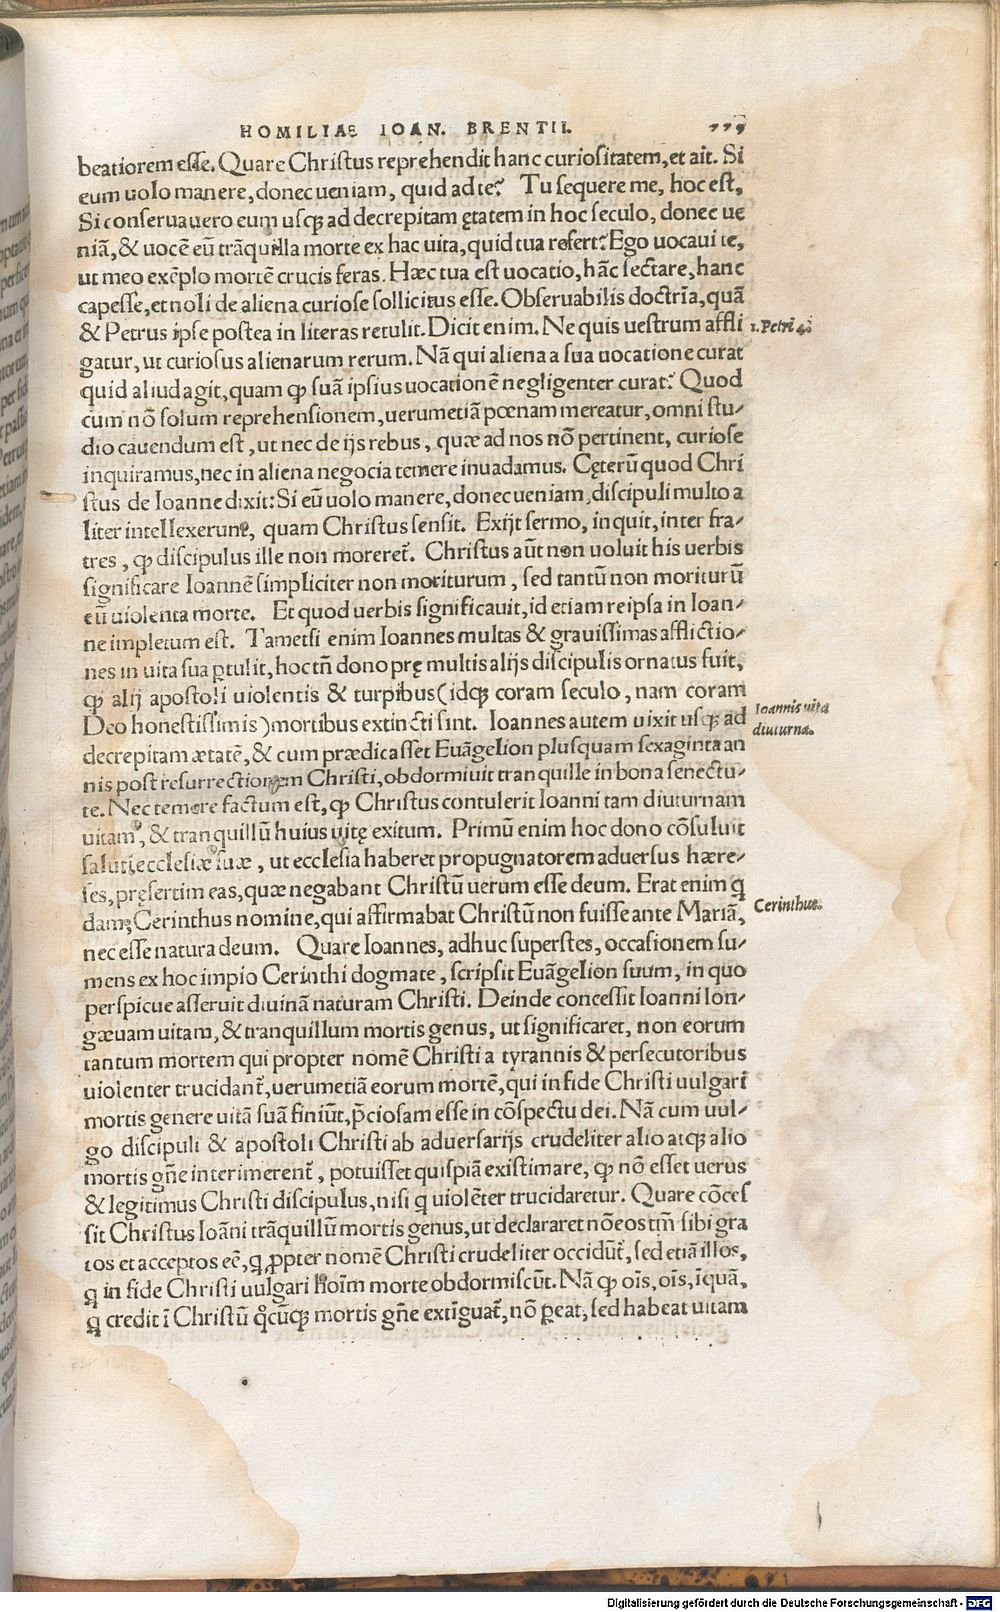 HOMILIAE IOAN. BRENTII.
beatiorem esse. Quare Christus reprehendit hanc curiositatem, et ait. Si
eum uolo manere, donec ueniam, quid ad te? Tu sequere me, hoc est,
Si conseruauero eum usqꝫ ad decrepitam ętatem in hoc seculo, donec ue
niā, & uocē eū trāquilla morte ex hac uita, quid tua refert? Ego uocaui te,
ut meo exēplo mortē crucis feras. Hæc tua est uocatio, hāc sectare, hanc
capesse, et noli de aliena curiose sollicitus esse. Obseruabilis doctrīa, quā
& Petrus ipse postea in literas retulit. Dicit enim. Ne quis uestrum affli
1. Petri 4.
gatur, ut curiosus alienarum rerum. Nā qui aliena a sua uocatione curat
quid aliud agit, quam ꝙ suā ipsius uocationē negligenter curat? Quod
cum nō solum reprehensionem, uerumetiā pœnam mereatur, omni stu/
dio cauendum est, ut nec de ijs rebus, quæ ad nos nō pertinent, curiose
inquiramus, nec in aliena negocia temere inuadamus. Cęterū quod Chri
stus de Ioanne dixit: Si eū uolo manere, donec ueniam, discipuli multo a
liter intellexerunt, quam Christus sensit. Exijt sermo, inquit, inter fra/
tres, ꝙ discipulus ille non moreret᷑. Christus aūt non uoluit his uerbis
significare Ioannē simpliciter non moriturum, sed tantū non moriturū
eū uiolenta morte. Et quod uerbis significauit, id etiam reipsa in Ioan/
ne impletum est. Tametsi enim Ioannes multas & grauissimas afflictio/
nes in uita sua ꝑtulit, hoc tñ dono prę multis alijs discipulis ornatus fuit,
ꝙ alij apostoli uiolentis & turpibus (idqꝫ coram seculo, nam coram
Deo honestissimis) mortibus extincti sint. Ioannes autem uixit usqꝫ ad
Ioannis uita
diuturna.
decrepitam ætatē, & cum prædicasset Euāgelion plusquam sexaginta an
nis post resurrectionem Christi, obdormiuit tranquille in bona senectu/
te. Nec temere factum est, ꝙ Christus contulerit Ioanni tam diuturnam
uitam, & tranquillū huius uitę exitum. Primū enim hoc dono cōsuluit
saluti ecclesiæ suæ, ut ecclesia haberet propugnatorem aduersus hære/
ses, pręsertim eas, quæ negabant Christū uerum esse deum. Erat enim q̇
dam Cerinthus nomine, qui affirmabat Christū non fuisse ante Mariā,
Cerinthus.
nec esse natura deum. Quare Ioannes, adhuc superstes, occasionem su/
mens ex hoc impio Cerinthi dogmate, scripsit Euāgelion suum, in quo
perspicue asseruit diuinā naturam Christi. Deinde concessit Ioanni lon/
gæuam uitam, & tranquillum mortis genus, ut significaret, non eorum
tantum mortem qui propter nomē Christi a tyrannis & persecutoribus
uiolenter trucidant᷑, uerumetiā eorum mortē, qui in fide Christi uulgari
mortis genere uitā suā finiūt, p̄ciosam esse in cōspectu dei. Nā cum uul/
go discipuli & apostoli Christi ab aduersarijs crudeliter alio atqꝫ alio
mortis gñe interimerent᷑, potuisset quispiā existimare, ꝙ nō esset uerus
& legitimus Christi discipulus, nisi q̇ uiolēter trucidaretur. Quare cōces
sit Christus Ioāni trāquillū mortis genus, ut declararet nō eos tm̄ sibi gra
tos et acceptos eē, q̇ ꝓpter nomē Christi crudeliter occidūt᷑, sed etiā illos,
q̇ in fide Christi uulgari hoīm morte obdormiscūt. Nā ꝙ oīs, oīs, īquā,
q̇ credit ī Christū q̊cūqꝫ mortis gñe extīguat᷑, nō ꝑeat, sed habeat uitam
Digitalisierung gefördert durch die Deutsche Forschungsgemeinschaft - DFG